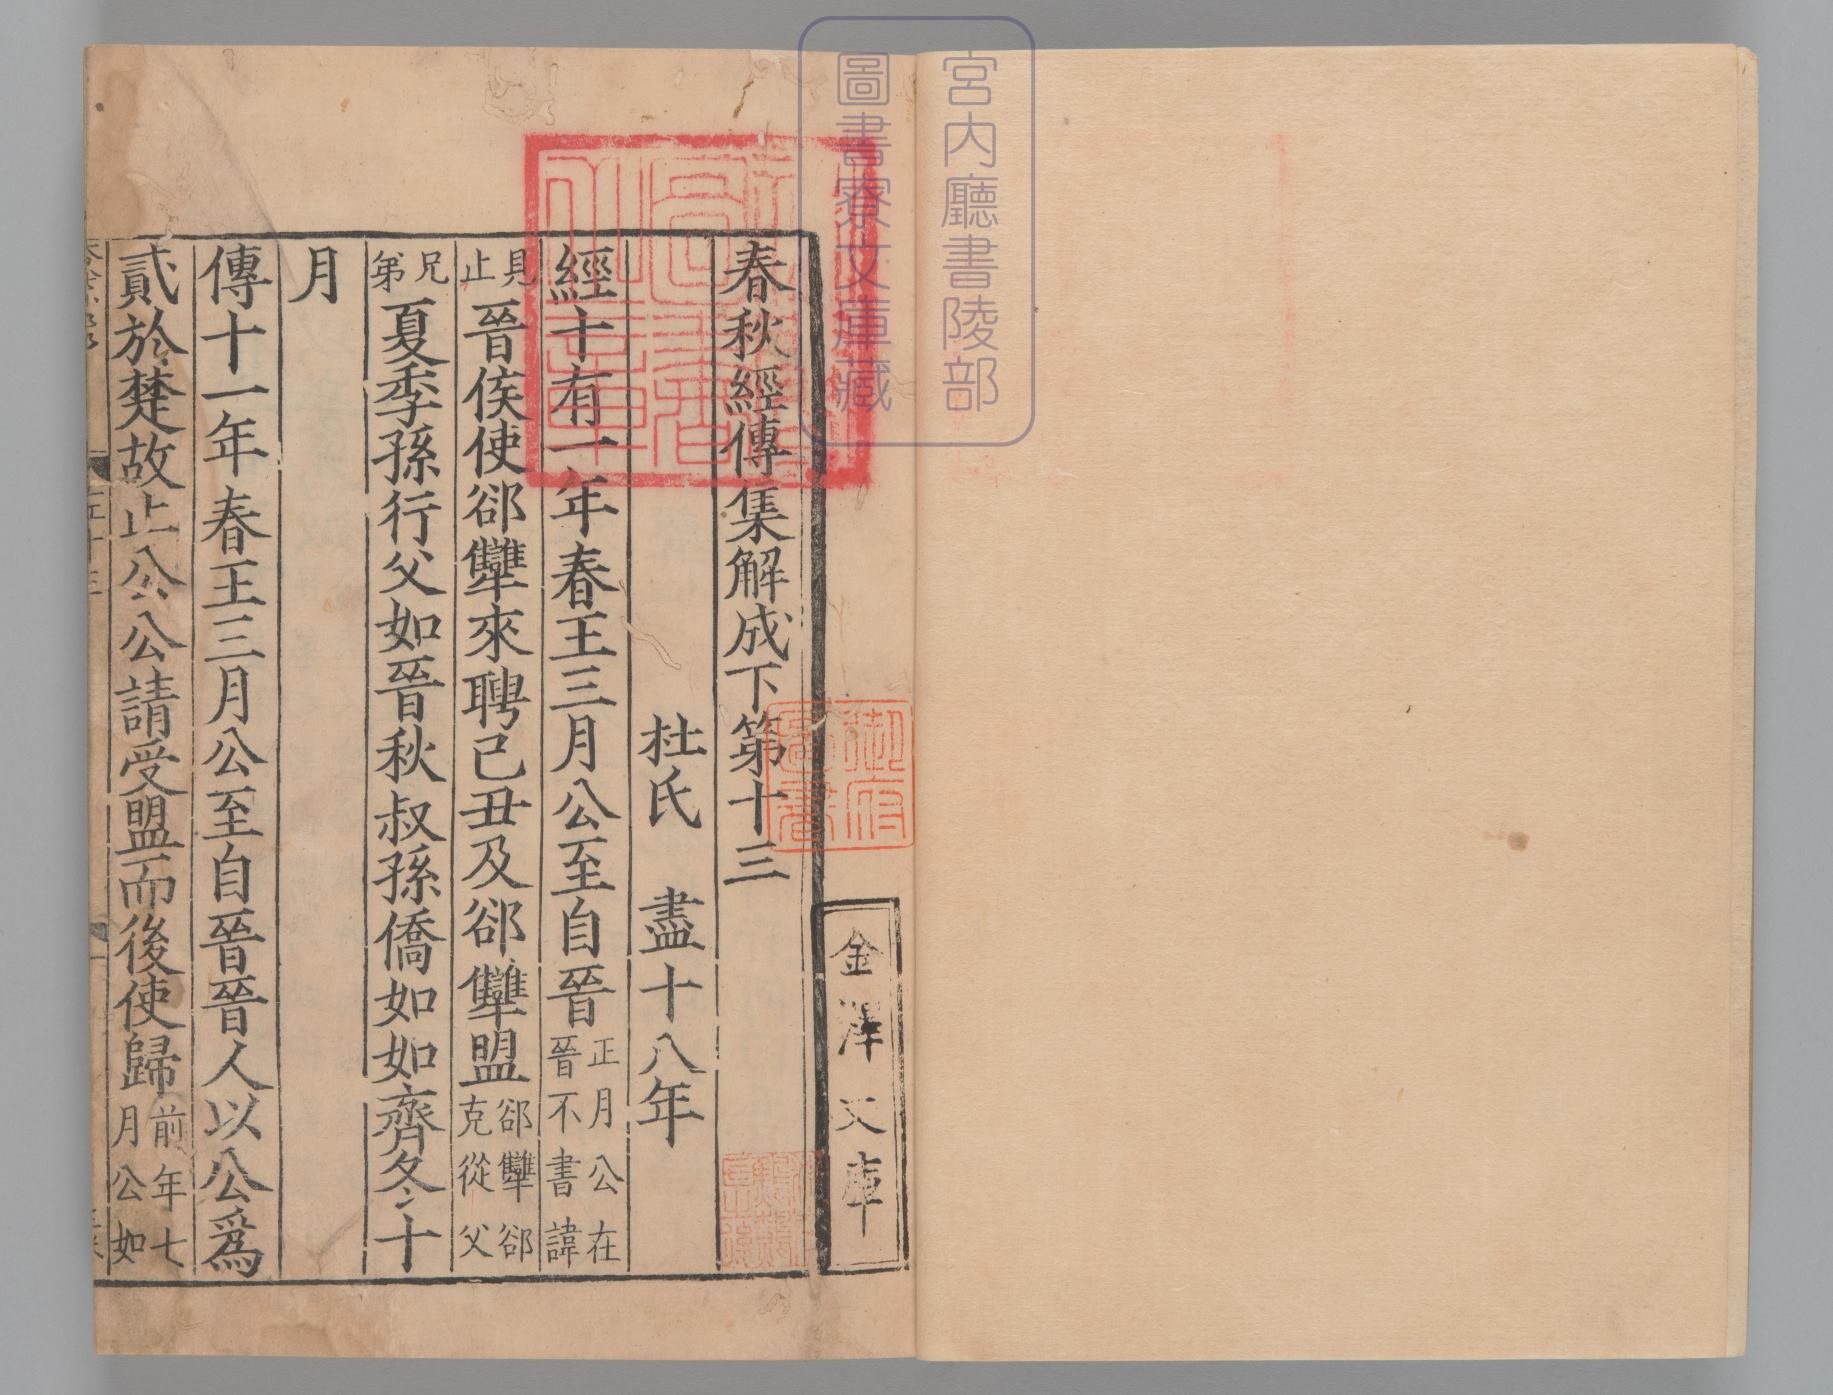 宮内廳書陵部
圖書寮文庫藏
金澤文庫
御府圖書
春秋經傳集解成下第十三
杜氏　盡十八年
經十有一年春王三月公至自晉正月公在晉不書諱
見止晉侯使郤犨來聘己丑及郤犨盟郤犨郤克從父
兄弟夏季孫行父如晉秋叔孫僑如如齊冬十
月
傳十一年春王三月公至自晉晉人以公爲
貳於楚故止公公請受盟而後使歸前年七月公如